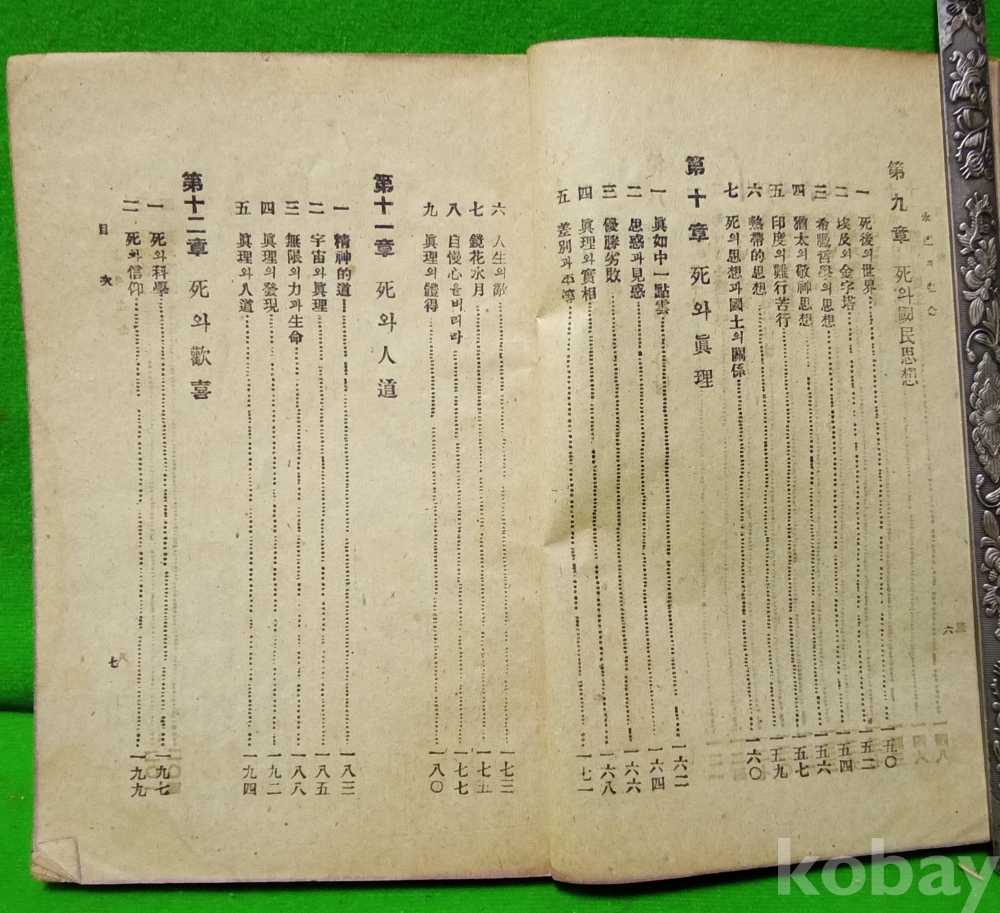 第九章 死와國民思想
一 死後의世界 一五〇
二 埃及의金字塔 一五二
三 希臘哲學의思想 一五四
四 猶太의敬神思想 一五六
五 印度의難行苦行 一五七
六 熱帶的思想 一五九
七 死의思想과國土의關係 一六〇
第十章 死와眞理
一 眞如中一點雲 一六二
二 思惑과見惑 一六四
三 優勝劣敗 一六六
四 眞理와實相 一六八
五 差別과平等 一七一
六
六 人生의敵 一七三
七 鏡花水月 一七五
八 自慢心을버리라 一七七
九 眞理의體得 一八〇
第十一章 死와人道
一 精神的道 一八三
二 宇宙와眞理 一八五
三 無限의力과生命 一八八
四 眞理의發現 一九二
五 眞理와人道 一九四
第十二章 死와歡喜
一 死와科學 一九七
二 死와信仰 一九九
目次
七
kobay